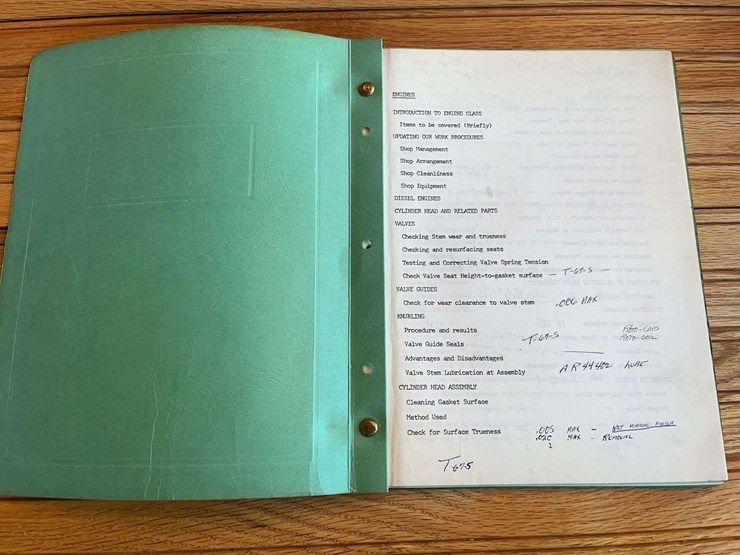 ENGINES
INTRODUCTION TO ENGINE CLASS
Items to be covered (Briefly)
UPDATING OUR WORK PROCEDURES
Shop Management
Shop Arrangement
Shop Cleanliness
Shop Equipment
DIESEL ENGINES
CYLINDER HEAD AND RELATED PARTS
VALVES
Checking Stem wear and trueness
Checking and resurfacing seats
Testing and Correcting Valve Spring Tension
Check Valve Seat Height-to-gasket surface — T-67-S —
VALVE GUIDES
Check for wear clearance to valve stem .006 MAX
KNURLING
Procedure and results
Valve Guide Seals T-67-S ROTO-COIL
Advantages and Disadvantages
Valve Stem Lubrication at Assembly AR44402 LUBE
CYLINDER HEAD ASSEMBLY
Cleaning Gasket Surface
Method Used
Check for Surface Trueness .005 MAX — NOT
MAX — REMOVAL
T-67-S